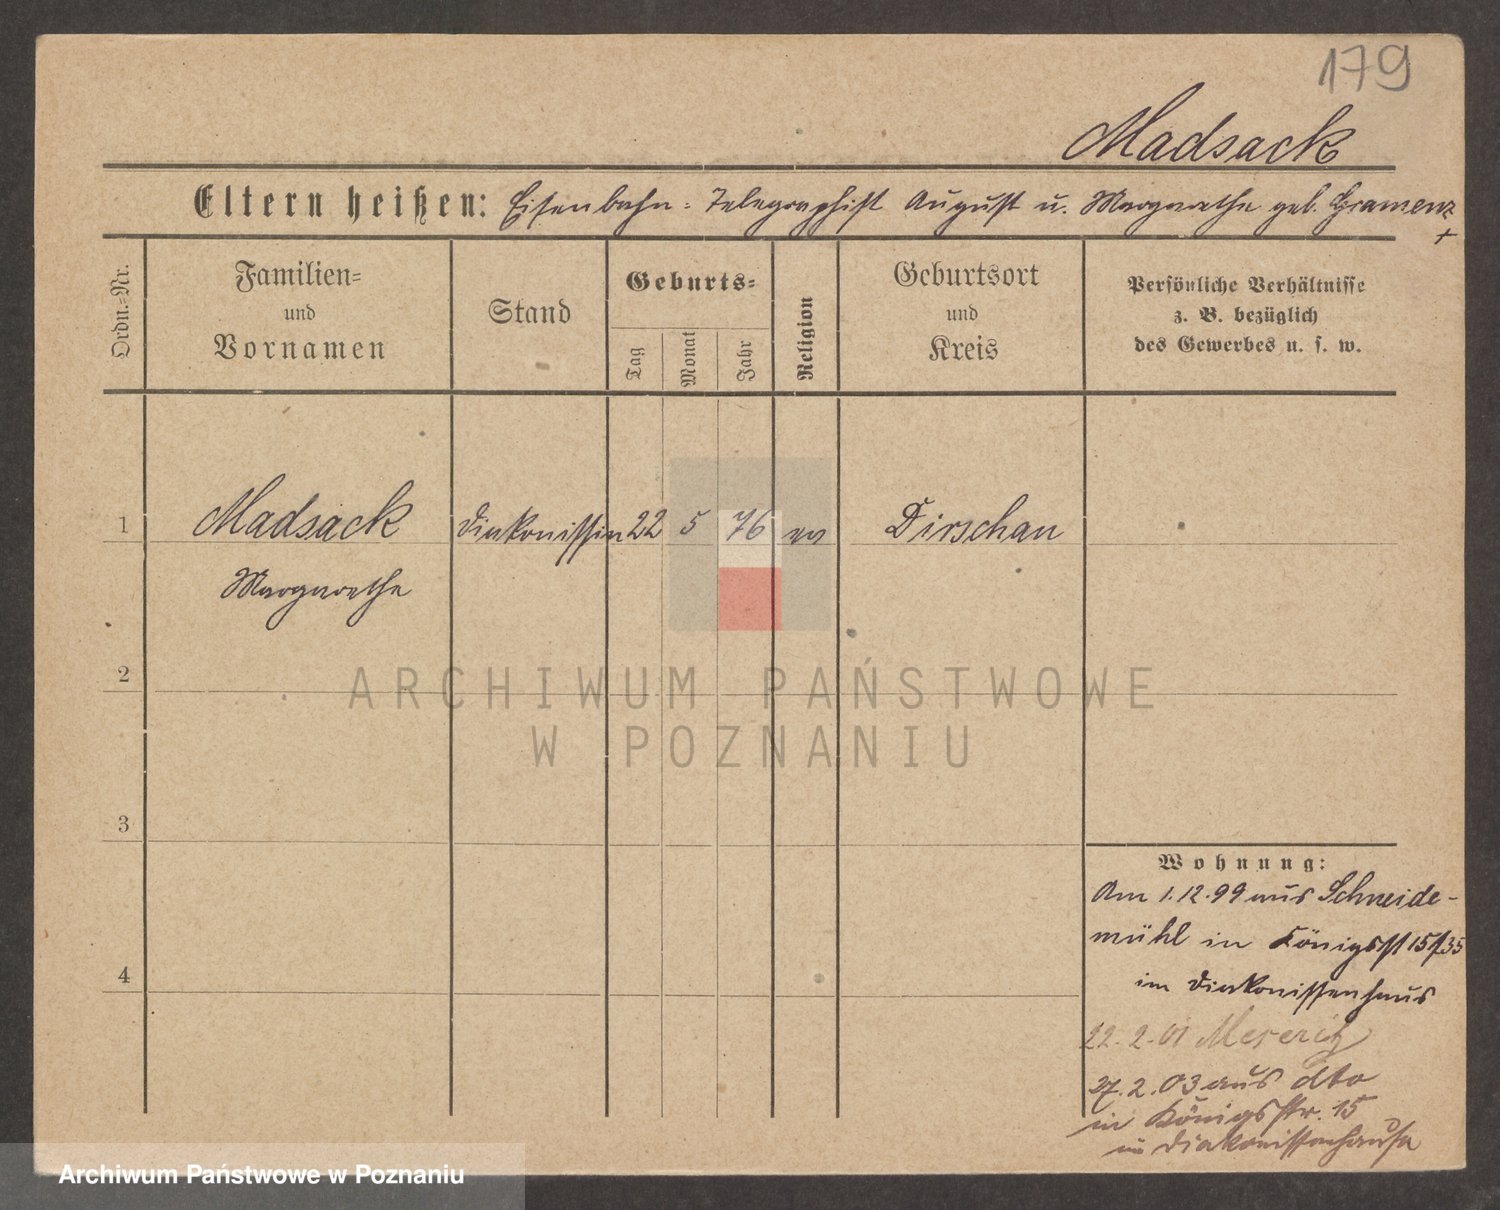 179
Madsack
Eltern heißen: Eisenbahn-Telegraphist August u. Margarethe geb. Gramenz
+
Ordn.-Nr.
Familien-
und
Vornamen
Stand
Geburts-
Tag
Monat
Jahr
Religion
Geburtsort
und
Kreis
Persönliche Verhältnisse
z. B. bezüglich
des Gewerbes u. s. w.
1 Madsack Diakonissin 22 5 76 ev Dirschau
Margarethe
2
ARCHIWUM PAŃSTWOWE
W POZNANIU
3
4
Wohnung:
Am 1.12.99 aus Schneide-
mühl in Königsst 15
im Diakonissenhaus
22.2.01 Meseritz
27.2.03 aus dto
in Königsstr. 15
im Diakonissenhause
Archiwum Państwowe w Poznaniu